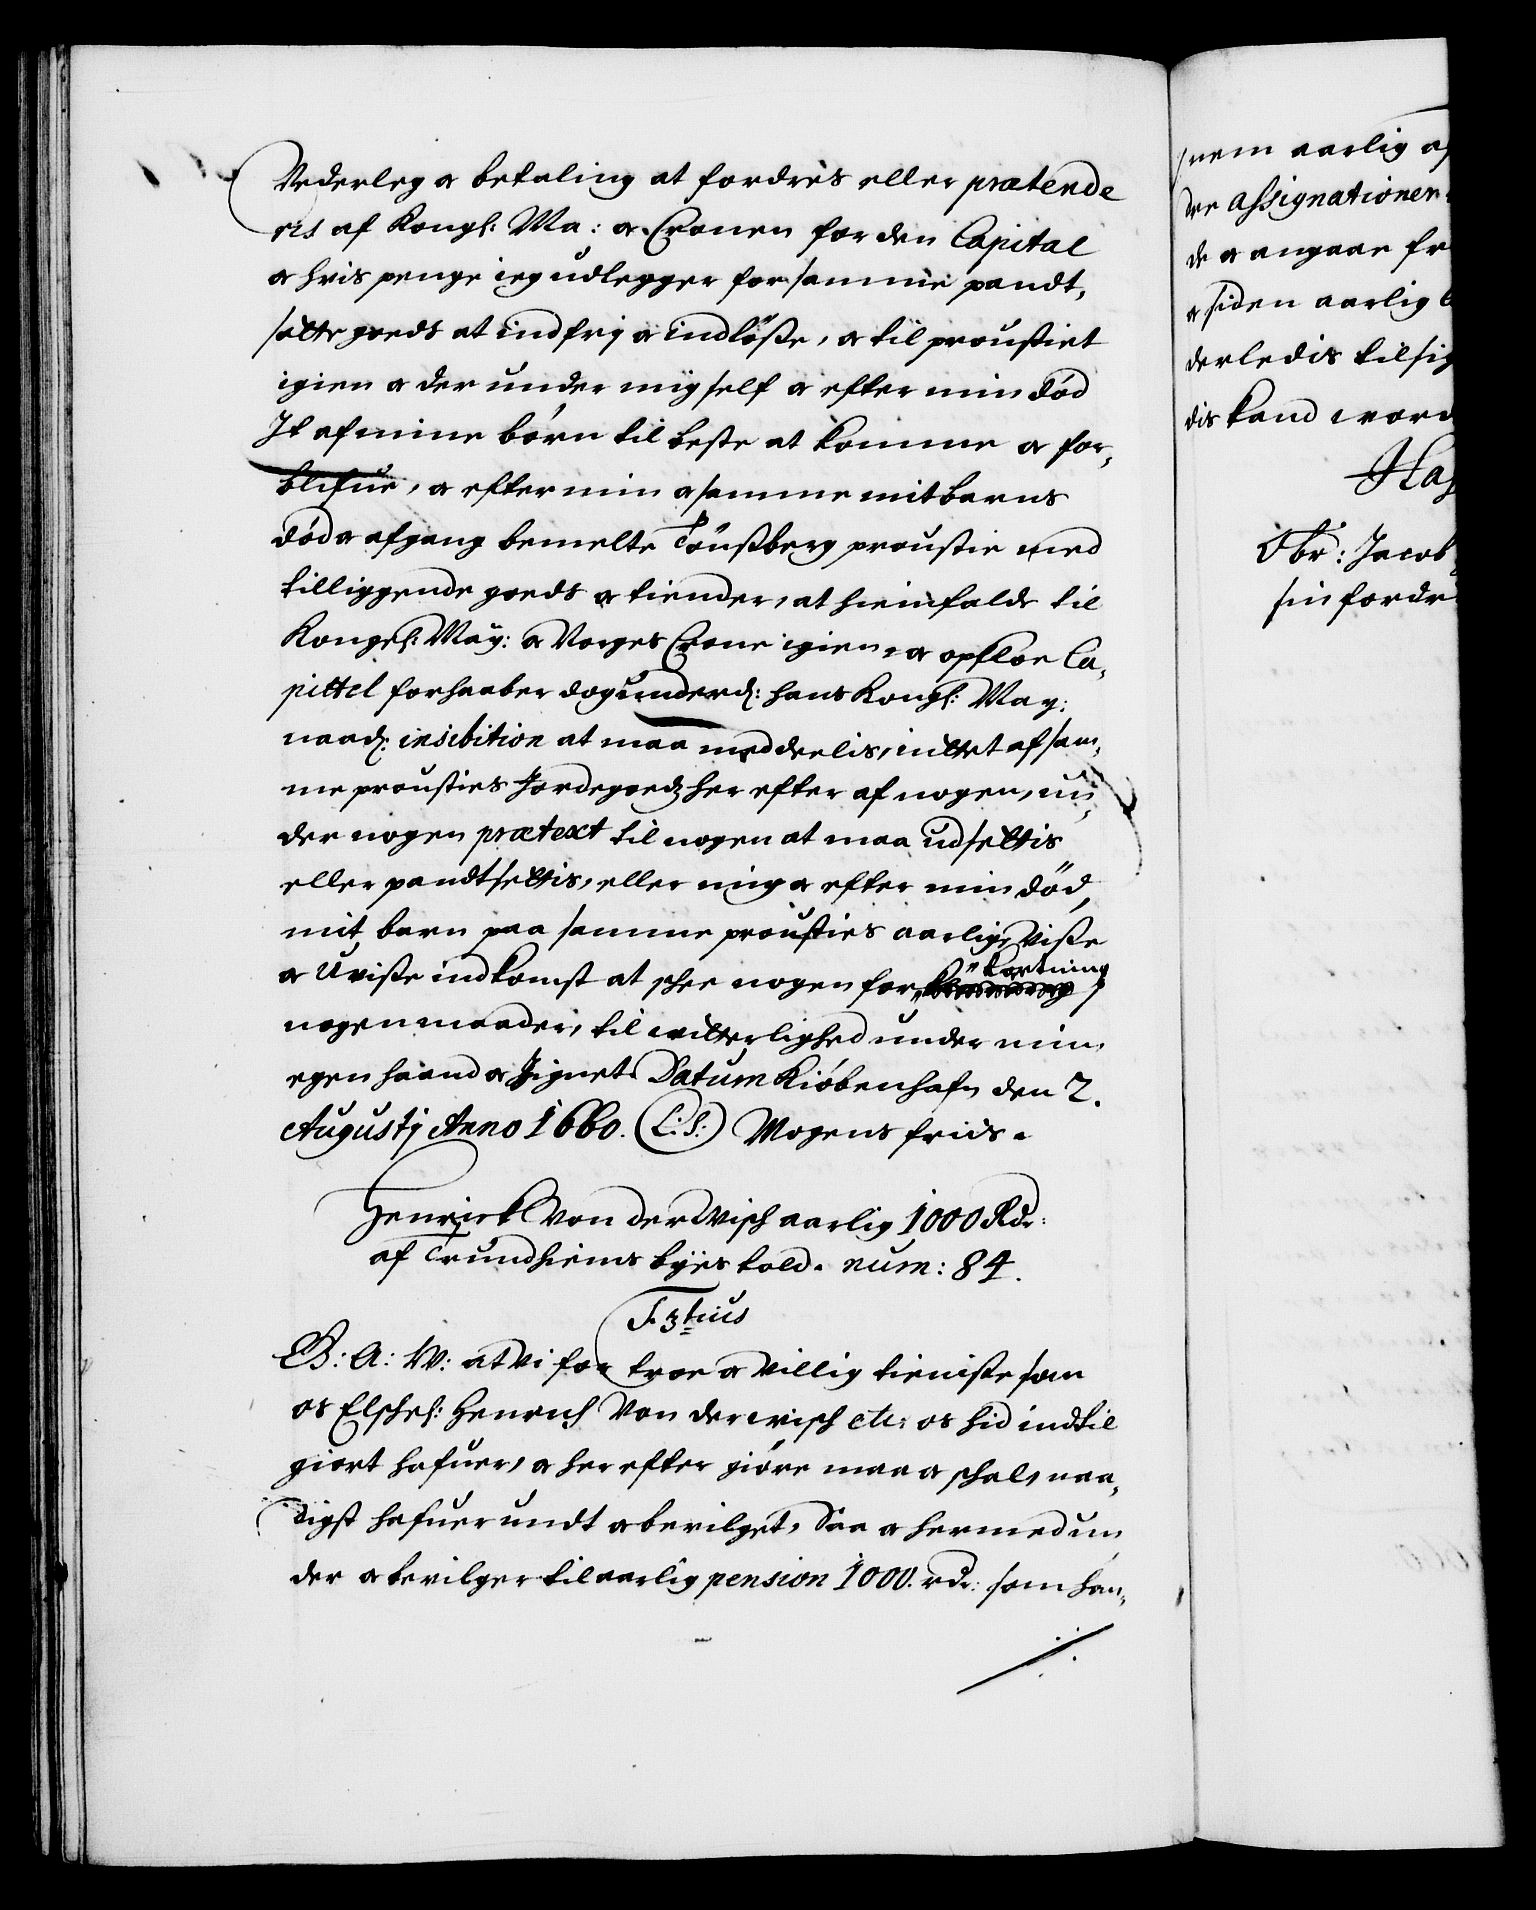 Vederleg & betaling at fordris eller prætende
ris af Kongl: Ma: & Cronen for den Capital
& hvis penge ieg udlegger for samme pandt,
satte goeds at indfrj & indlösse, & til proustiet
igien & der under mig self & efter min död
It af mine börn til beste at komme & for,
blifue, & efter min & samme mit barns
död & afgang bemelte Tönssberg proustie med
tilliggende goeds & tiender, at hiemfalde til
Kongel: May: & Norges Crone igien, &
pittel forhaaber dog underd: hans Kongl: May:
naad: at maa meddeelis, intet af sam,
me prousties Jordegoedz her efter af nogen, un,
der nogen prætext til nogen at maa udsettis
eller pandtsettis, eller mig & efter min död,
mit barn paa samme prousties aarlige visse
& Uvisse indkomst at schee nogen forkortning j
nogen maader, til witterlighed under min
egen haand & Signet. Datum Kiöbenhafn den 2.
Augustj Anno 1660. (L:S:) Mogens friis.
Henrick Von der Wisch aarlig 1000 Rdr:
af Trundhiems byes told. num: 84.
F. 3tius
G: A: W: at Vi for troe & villig tieniste som
os Elschel: Henrich Von der wisch etc: os hid indtil
giort hafuer, & her efter giöre maa & schal, naa,
digst hafuer undt & bevilget, Saa & hermed un,
der & bevilger til aarlig pension 1000. rdr: som han,
aarlig af
der assignationer
de & angaae fr
& siden aarlig
derledis tilsig
dis kand word
Hag
Obr: Jacob
sin fordr